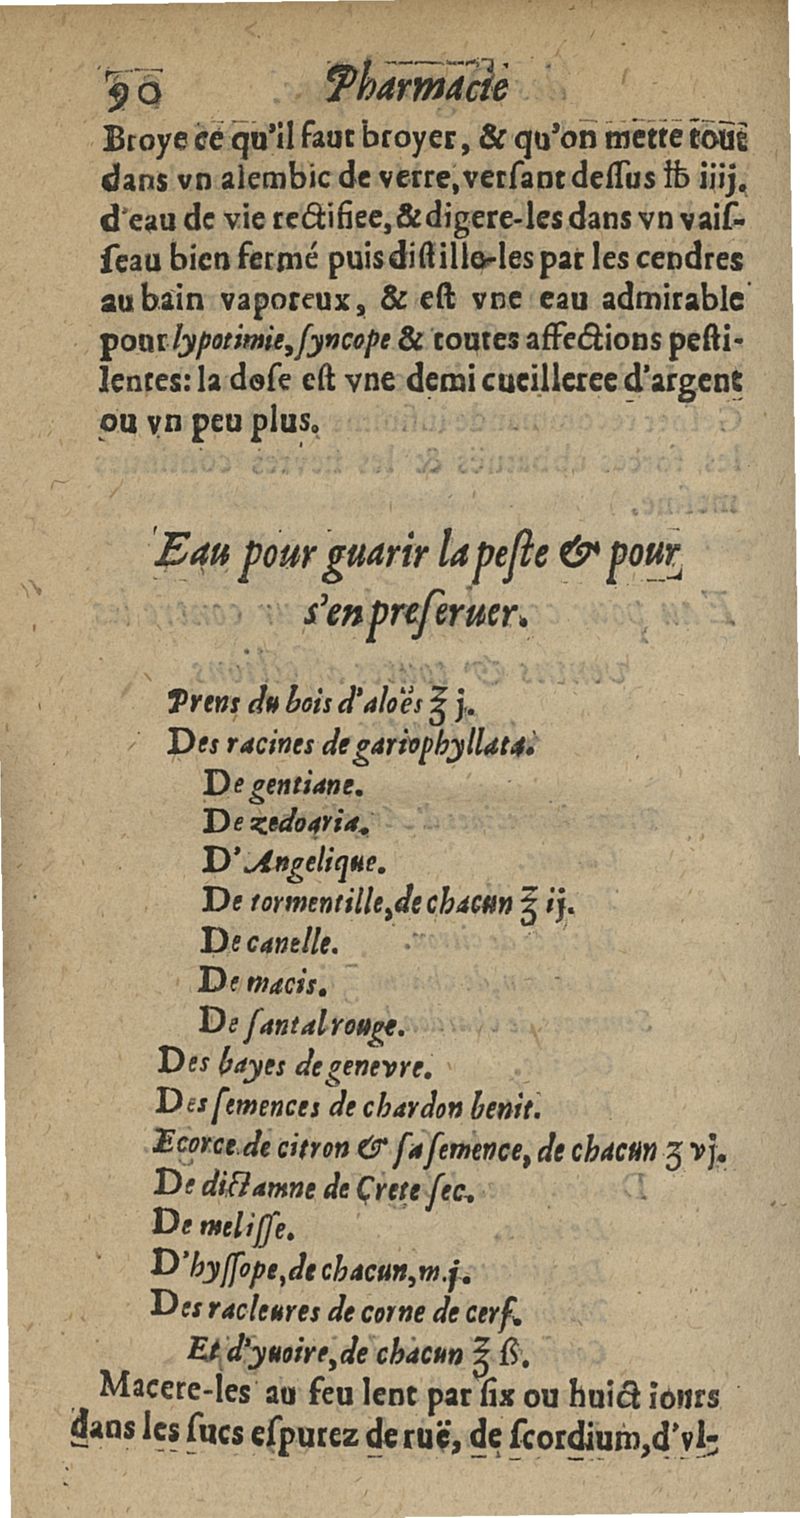 90 Pharmacie
Broye ce qu'il faut broyer, & qu'on mette tout
dans vn alembic de verre, versant dessus ℔ iiij.
d'eau de vie rectifiee, & digere-les dans vn vais-
seau bien fermé puis distille-les par les cendres
au bain vaporeux, & est vne eau admirable
pour lypotimie, syncope & toutes affections pesti-
lentes: la dose est vne demi cueilleree d'argent
ou vn peu plus.
Eau pour guarir la peste & pour
s'en preseruer.
Prens du bois d'aloës ℥ j.
Des racines de gariophyllata.
De gentiane.
De zedoaria.
D'Angelique.
De tormentille, de chacun ℥ ij.
De canelle.
De macis.
De santal rouge.
Des bayes de genevre.
Des semences de chardon benit.
Ecorce de citron & sa semence, de chacun ʒ vj.
De dictamne de Crete sec.
De melisse.
D'hyssope, de chacun, m. j.
Des racleures de corne de cerf.
Et d'yuoire, de chacun ℥ ß.
Macere-les au feu lent par six ou huict iours
dans les sucs espurez de ruë, de scordium, d'vl-